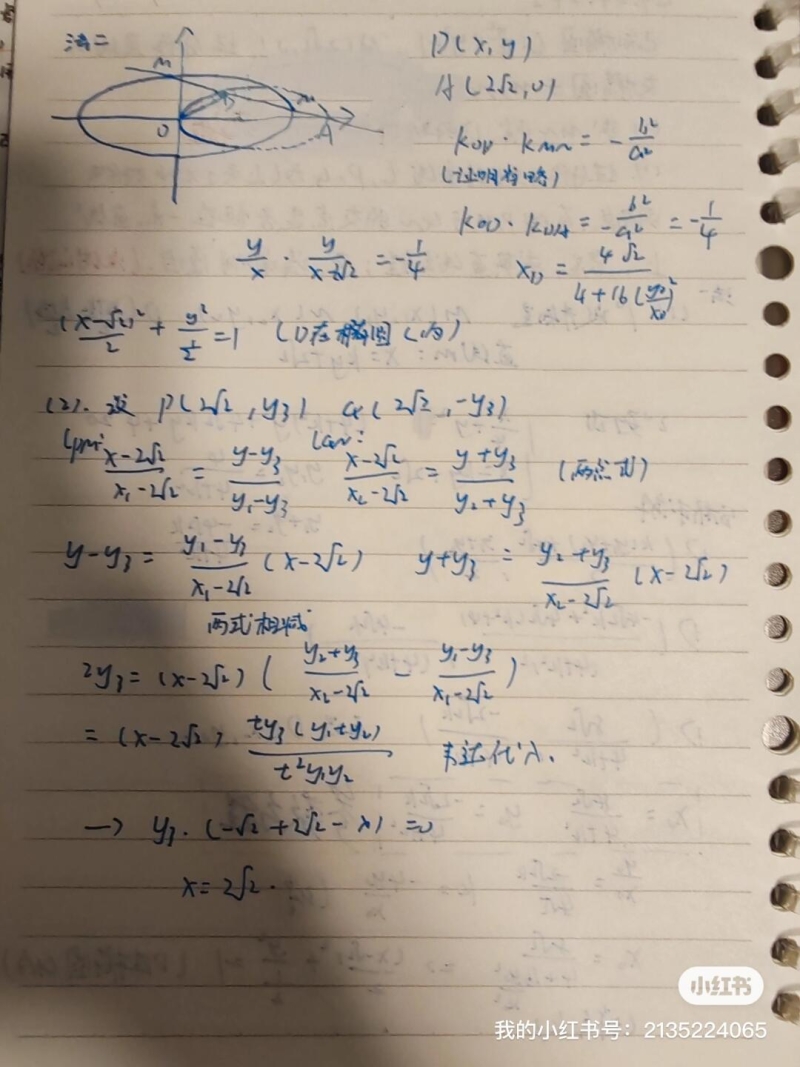 法二
M
D
O
A
D(x,y)
A(2√2,0)
k_OD · k_MN = -b²/a²
(证明省略)
k_OD · k_DA = -b²/a² = -1/4
y/x · y/(x-2√2) = -1/4
x_D = 4√2/(4+16(y_0/x_0)²)
(x-√2)²/2 + y²/(1/2) = 1 (D在椭圆C内)
(2). 设 P(2√2, y₃) Q(2√2, -y₃)
l_PM: (x-2√2)/(x₁-2√2) = (y-y₃)/(y₁-y₃) l_QN: (x-2√2)/(x₂-2√2) = (y+y₃)/(y₂+y₃) (两点式)
y-y₃ = (y₁-y₃)/(x₁-2√2) (x-2√2) y+y₃ = (y₂+y₃)/(x₂-2√2) (x-2√2)
两式相减
2y₃ = (x-2√2) ( (y₂+y₃)/(x₂-2√2) - (y₁-y₃)/(x₁-2√2) )
= (x-2√2) ty₃(y₁+y₂)/(t²y₁y₂) 韦达代入.
→ y₃ · (-√2+2√2-x) = 0
x = 2√2.
小红书
我的小红书号：2135224065